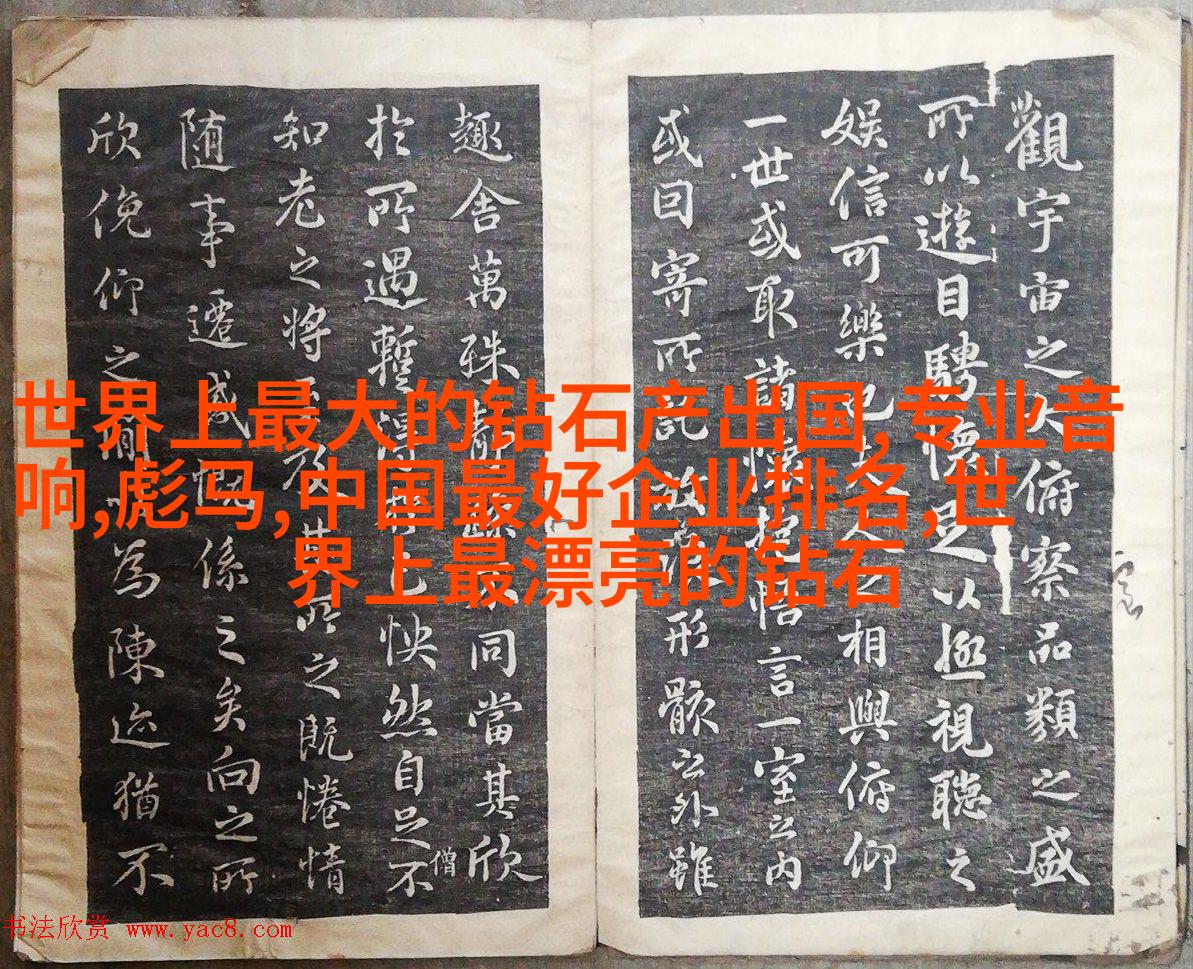 世界上最大的钻石产出国,专业音
响,彪马,中国最好企业排名,世
界上最漂亮的钻石
觀宇宙之大俯察品類之盛
所以遊目騁懷是以極視聽之
娛信可樂也夫人之相與俯仰
一世或取諸懷抱悟言一室之內
或因寄所託放浪形骸之外雖
趣舍萬殊靜躁不同當其欣
於所遇暫得於己怏然自足不
僧
知老之將至及其所之既惓情
隨事遷感慨係之矣向之所
欣俛仰之間以為陳迹猶不
书法欣赏 www.yac8.com